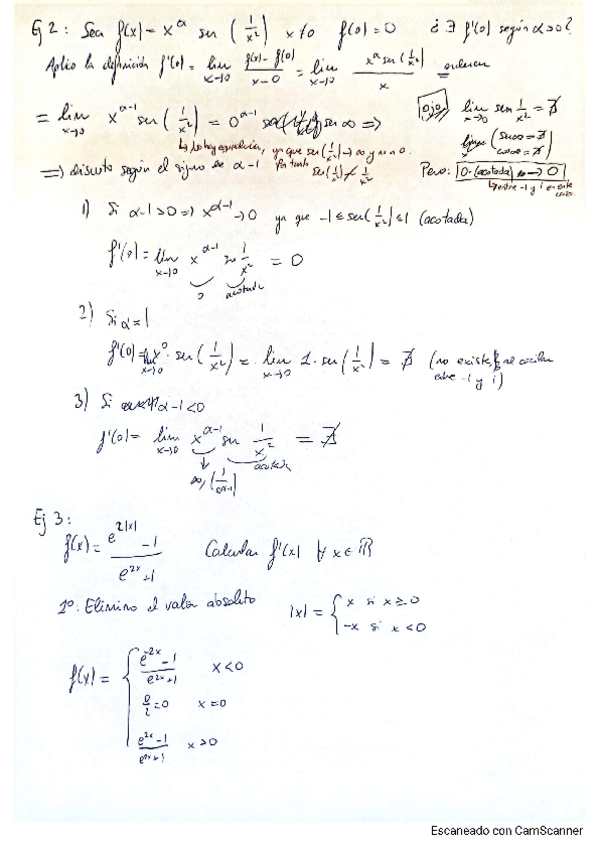 Ej 2: Sea f(x) = x^α sen (1/x²) x≠0 f(0)=0 ¿∃ f'(0) según α>0?
Aplico la definición f'(0) = lim x→0 (f(x) - f(0))/(x-0) = lim x→0 (x^α sen(1/x²))/x = ordenar
= lim x→0 x^(α-1) sen(1/x²) = 0^(α-1) sen ∞ =>
Ojo, lim x→0 sen 1/x² = ∄
(sen∞ = ∄
cos∞ = ∄)
↳ No hay equivalencia, ya que sen(1/x²) → ∞ y no a 0.
Por tanto sen(1/x²) ≁ 1/x²
Pero: 0·(acotada) → 0
↳ entre -1 y 1 en este caso
=> discuto según el signo de α-1
1) Si α-1>0 => x^(α-1) → 0 ya que -1 ≤ sen(1/x²) ≤ 1 (acotada)
f'(0) = lim x→0 x^(α-1) sen 1/x² = 0
0 acotada
2) Si α=1
f'(0) = lim x→0 x⁰ · sen(1/x²) = lim x→0 1·sen(1/x²) = ∄ (no existe, al oscilar
entre -1 y 1)
3) Si α-1<0
f'(0) = lim x→0 x^(α-1) sen 1/x² = ∄
↓ acotada
Ej 3:
f(x) = (e^(2|x|) - 1)/(e^(2x) + 1) Calcular f'(x) ∀ x∈ℝ
1º: Elimino el valor absoluto |x| = { x si x≥0
-x si x<0
f(x) = { (e^(-2x) - 1)/(e^(2x) + 1) x<0
0/2 = 0 x=0
(e^(2x) - 1)/(e^(2x) + 1) x>0
Escaneado con CamScanner